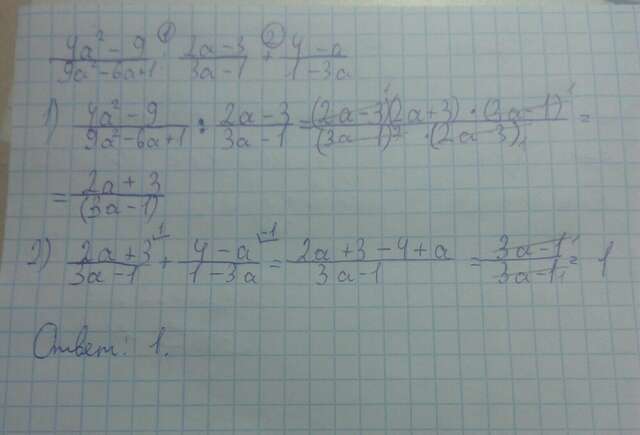 ① ②
(4a² - 9)/(9a² - 6a + 1) : (2a - 3)/(3a - 1) + (4 - a)/(1 - 3a)
1) (4a² - 9)/(9a² - 6a + 1) : (2a - 3)/(3a - 1) = ((2a - 3)(2a + 3) · (3a - 1))/((3a - 1)² · (2a - 3)) =
= (2a + 3)/(3a - 1)
2) (2a + 3)/(3a - 1) + (4 - a)/(1 - 3a) = (2a + 3 - 4 + a)/(3a - 1) = (3a - 1)/(3a - 1) = 1
Ответ: 1.